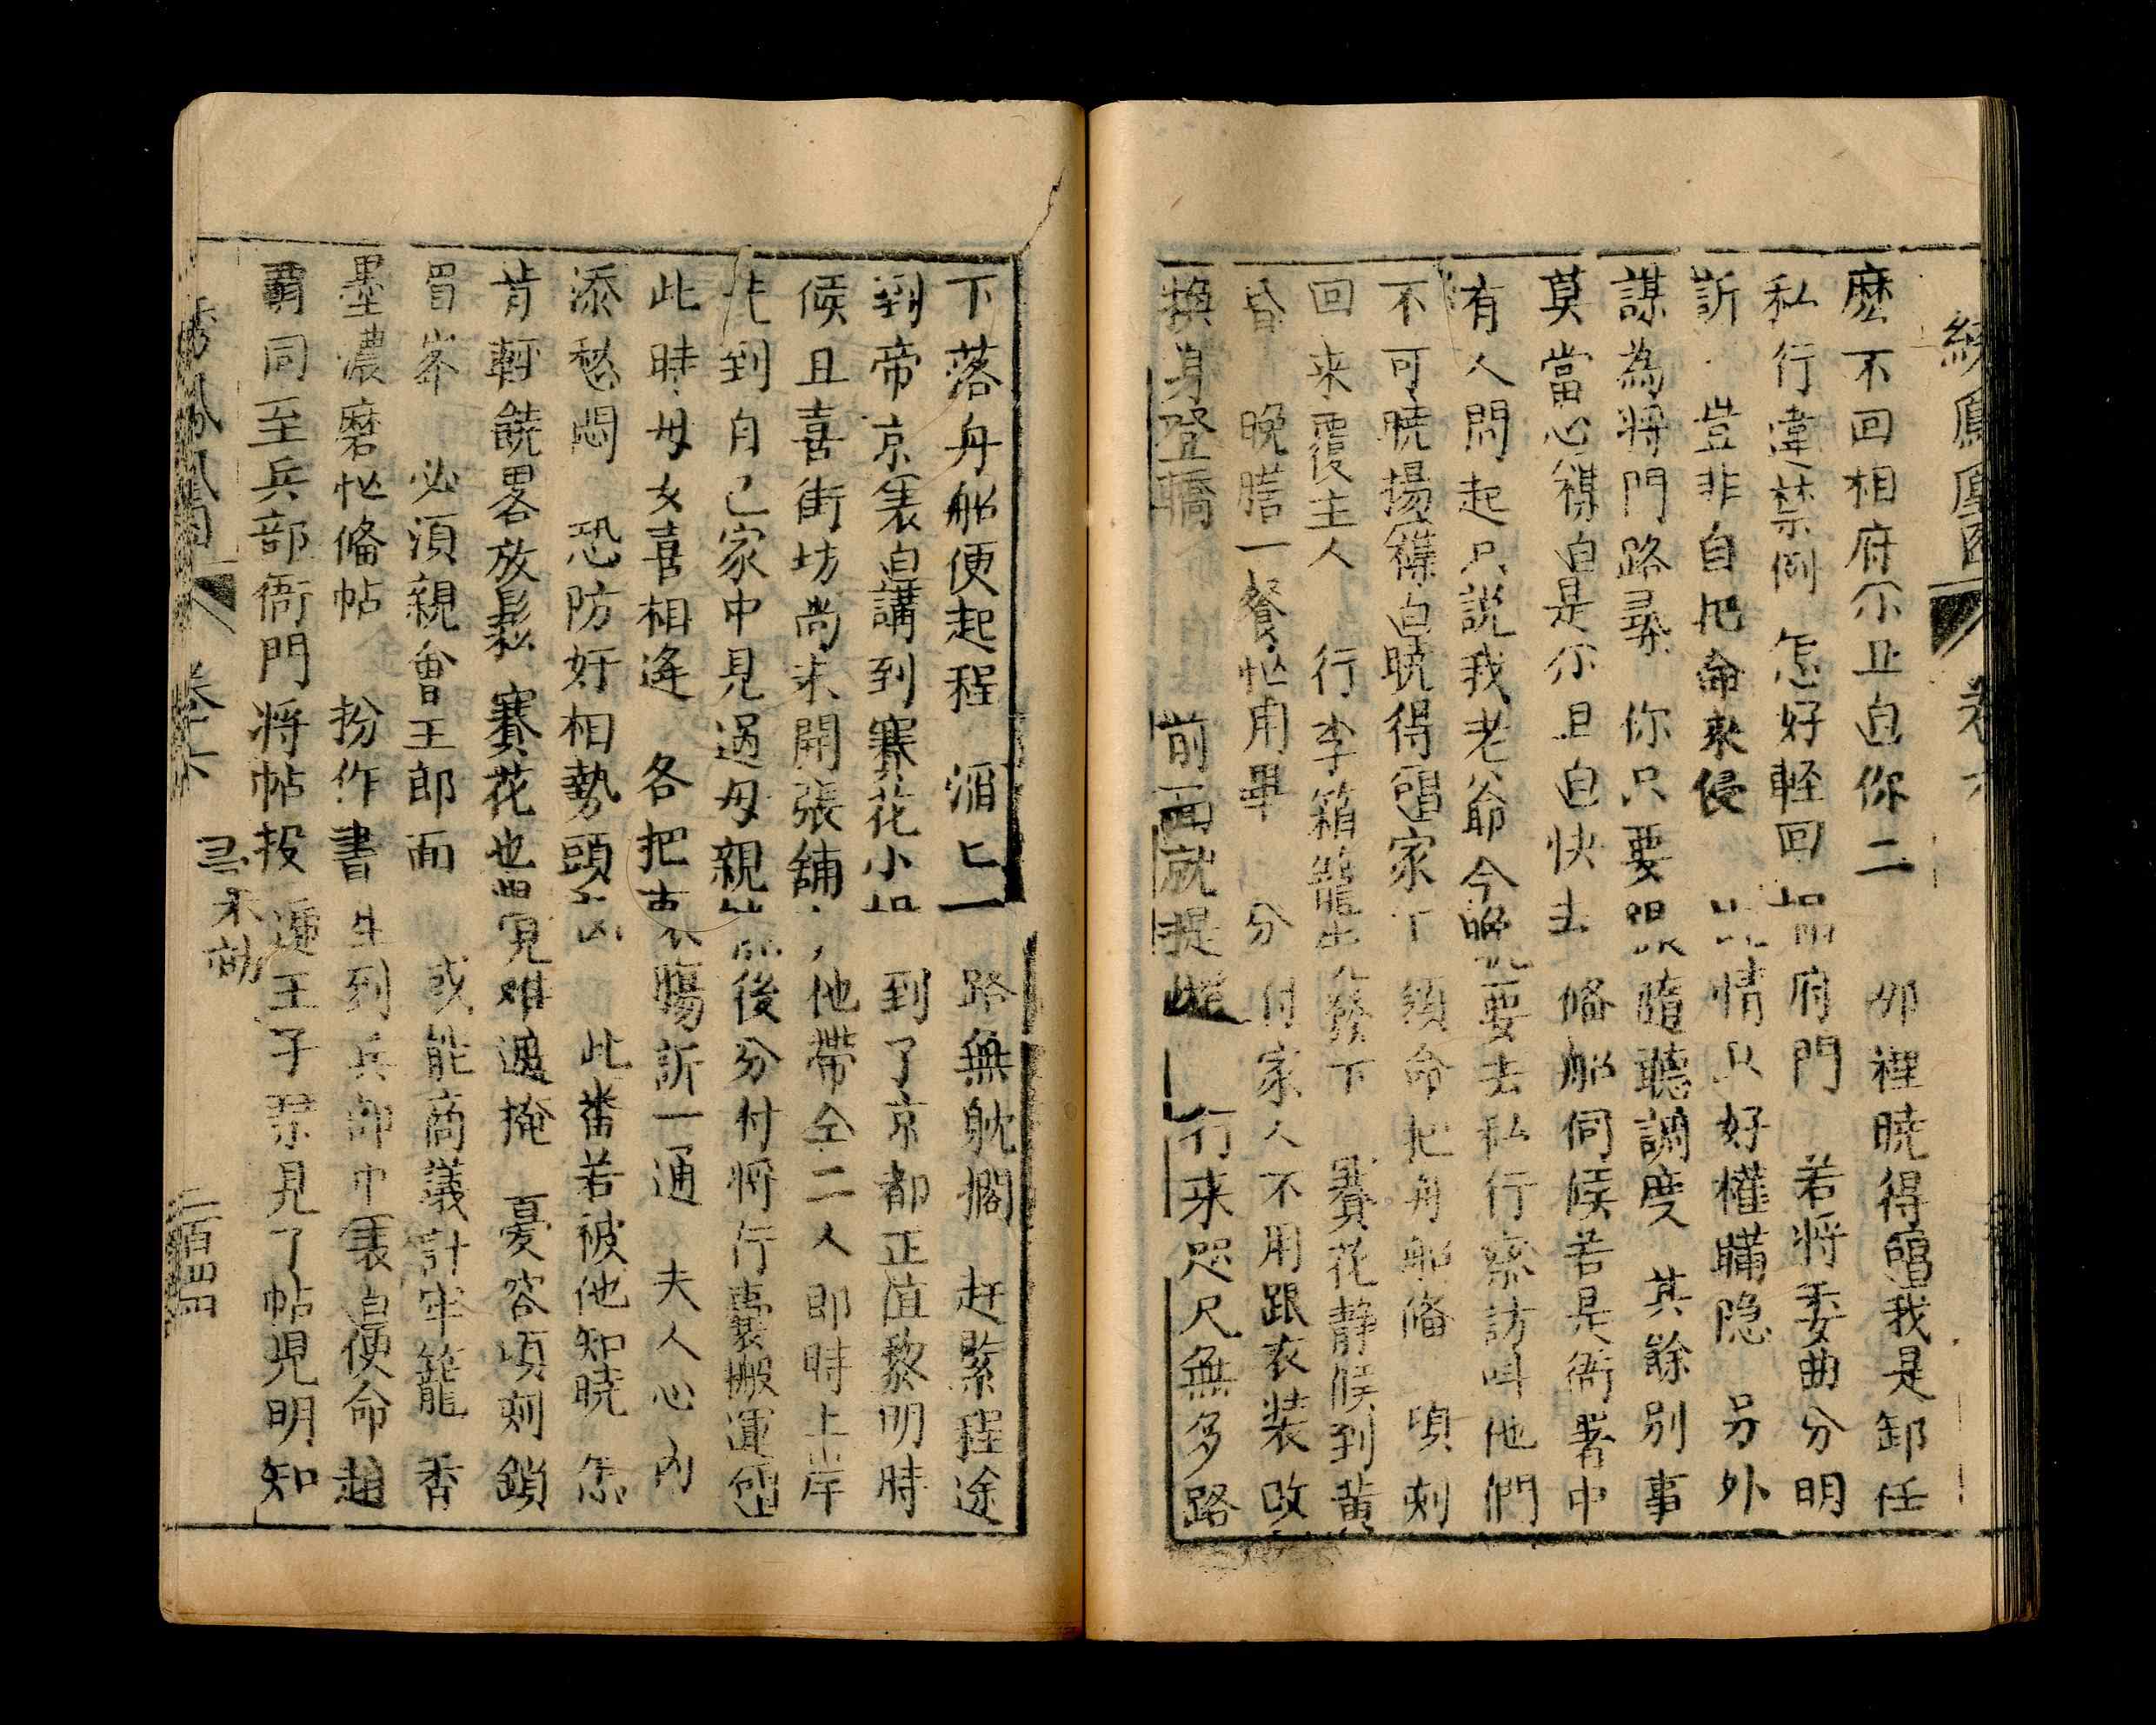 麽不回相府 尔且白你二 那裡曉得唱我是卸任
私行違禁例 怎好輕回相府門 若將委曲分明
訴 豈非自把侖來侵 此情只好權瞞隐 另外
謀為將門路尋 你只要跟隨聽調度 其餘別事
莫當心 襟白是尔且白快去俻船伺候若是衙署中
有人問起只説我老爺今晚就要去私行察訪叫他們
不可曉揚 襟白曉得唱家丁領命把舟船俻 頃刻
回来覆主人 行李箱籠先發下 賽花静候到黄
昏 晚膳一餐忙用畢 分付家人不用跟 衣装改
換身登轎 前面就提 行来咫尺無多路
下落舟船便起程 滔匕一路無躭擱 赶緊程途
到帝京 表白講到賽花小姐 到了京都正值黎明時
候且喜街坊尚未開張舖 他帶仝二人即時上岸
先到自己家中見過母親 然後分付將行囊搬運 唱
此時母女喜相逢 各把衷腸訴一通 夫人心内
添愁悶 恐防奸相勢頭凶 此番若被他知曉 怎
肯輕饒畧放鬆 賽花也 冤难遮掩 憂容頃刻鎖
眉峯 必須親會王郎面 或能商議計牢籠 香
墨濃磨忙俻帖 扮作書生到兵部中 表白便命趙
覇同至兵部衙門將帖投遞王子荣見了帖兒明知
繡鳳凰図 卷六 二百四四